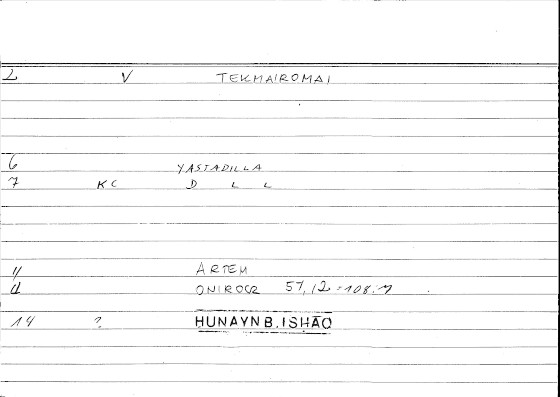 2 V TEKMAIROMAI
6 YASTADILLA
7 KC D L L
11 ARTEM
d ONIROCR 57,12 = 108.7
14 ? HUNAYN B. ISHĀQ